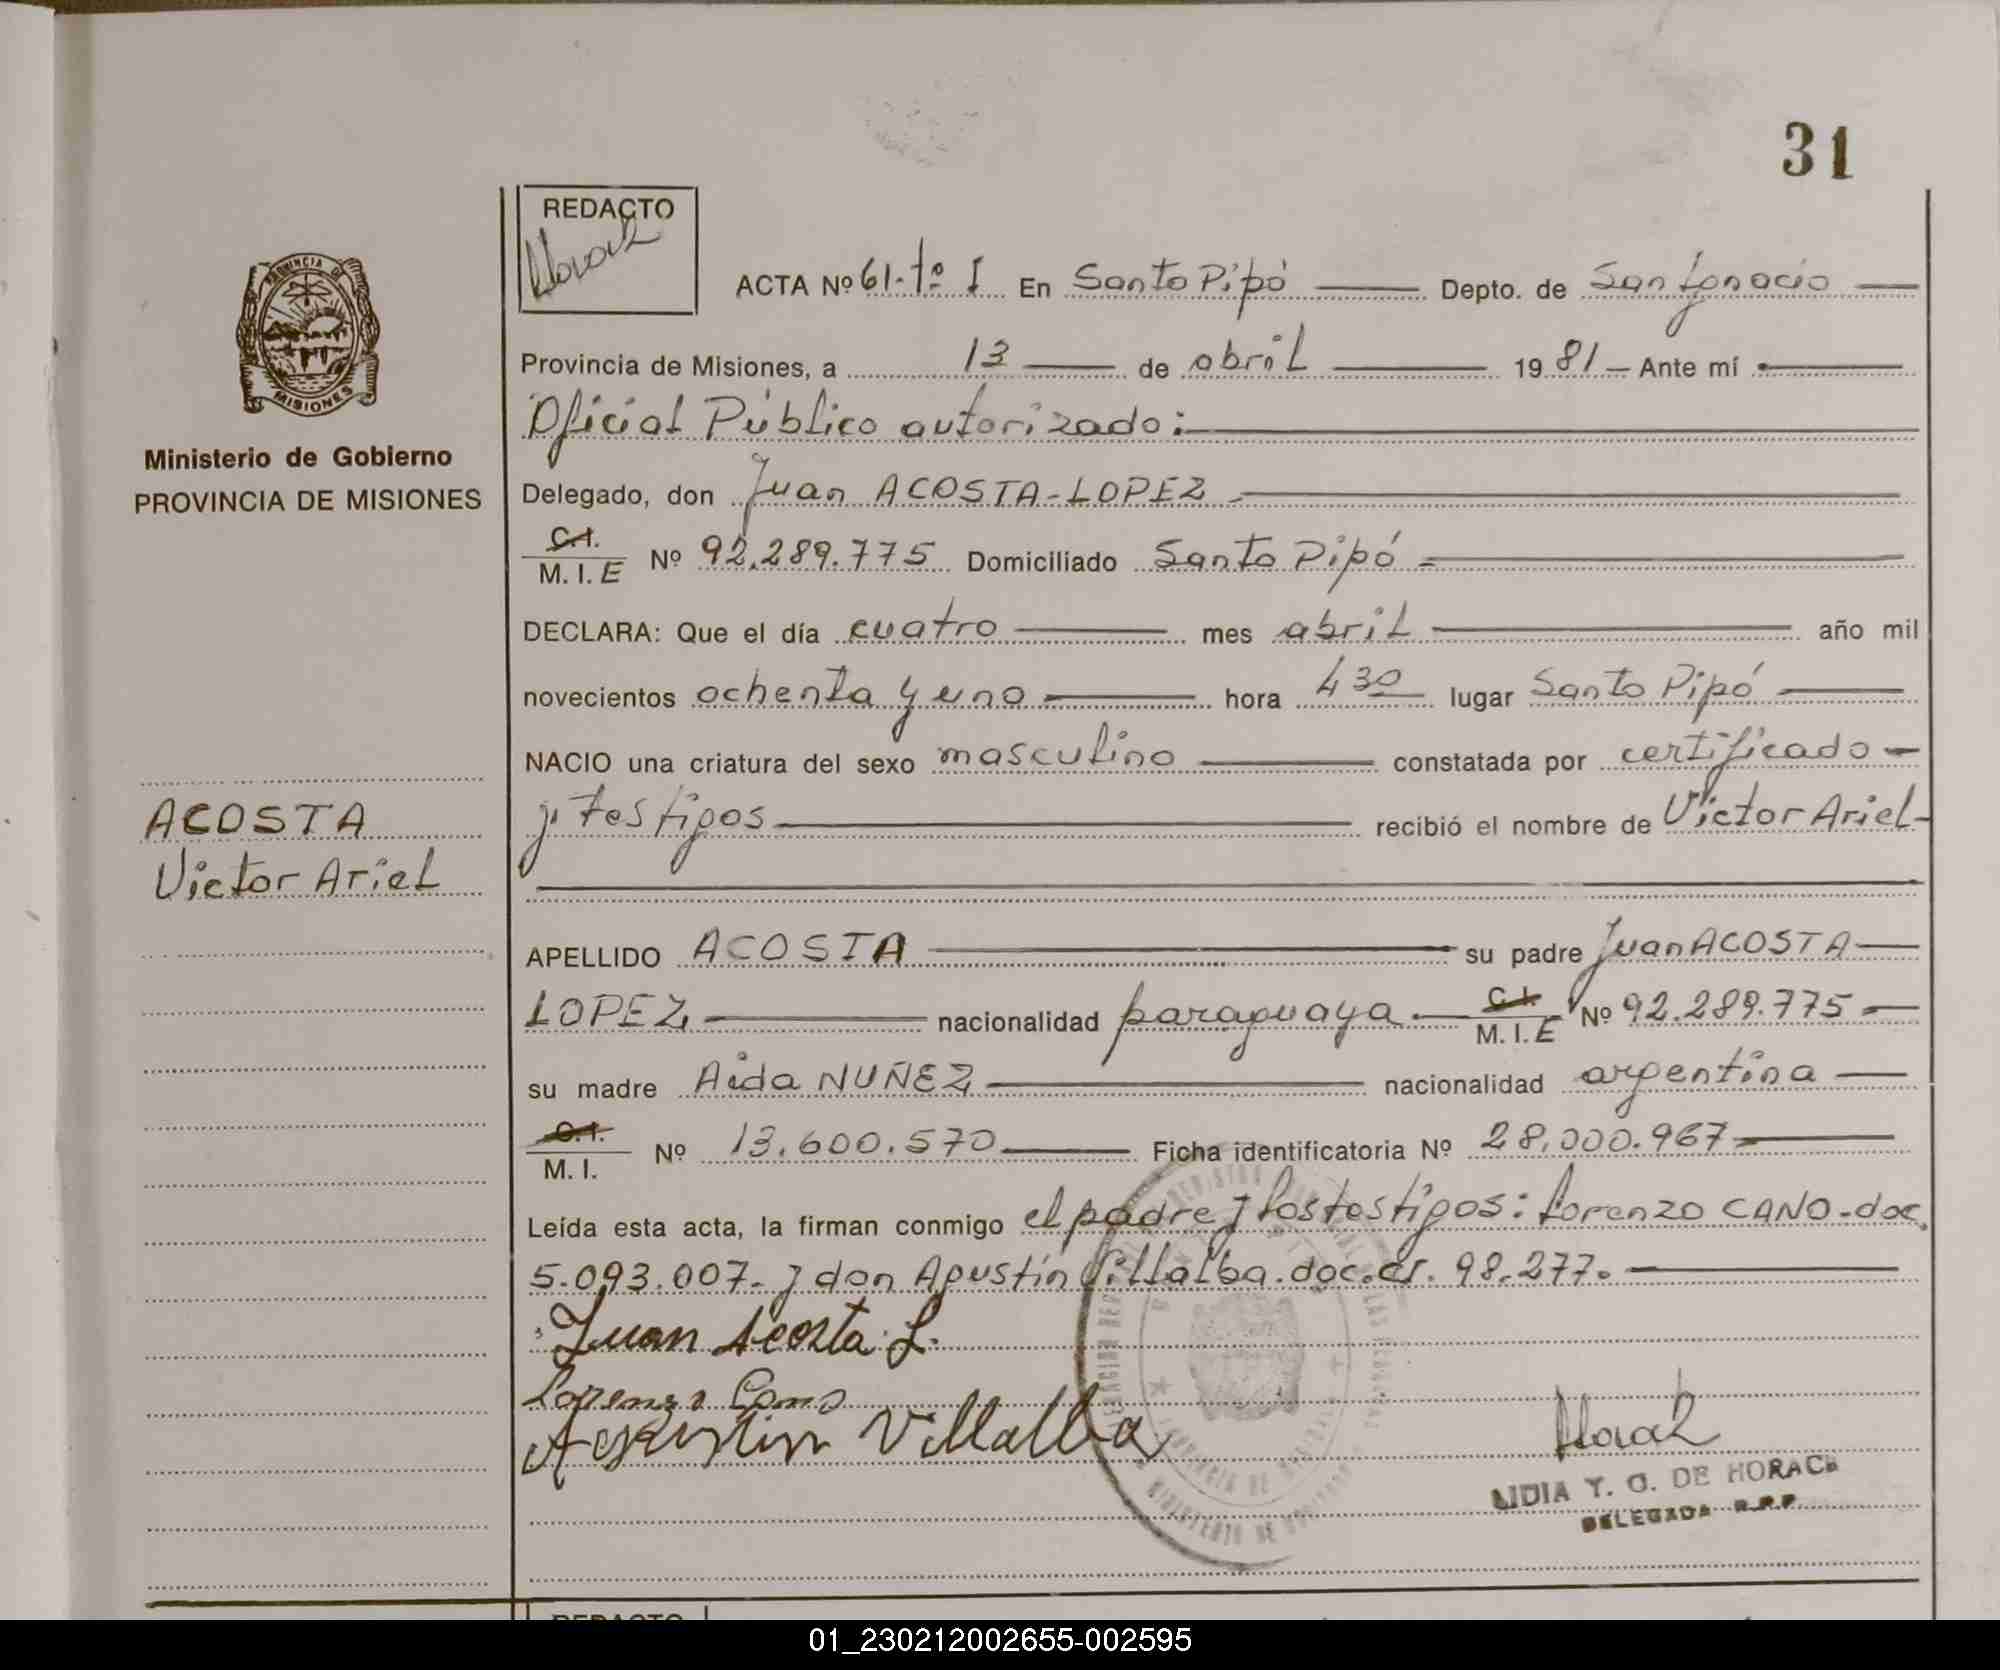 31
REDACTO
Horach
ACTA Nº 61-tº I En Santo Pipó Depto. de San Ignacio
PROVINCIA DE
MISIONES
Provincia de Misiones, a 13 de abril 1981 - Ante mí
Oficial Público autorizado:
Ministerio de Gobierno
PROVINCIA DE MISIONES
Delegado, don Juan ACOSTA-LOPEZ
C.I.
M. I. E Nº 92.289.775 Domiciliado Santo Pipó
DECLARA: Que el día cuatro mes abril año mil
novecientos ochenta y uno hora 4 30 lugar Santo Pipó
NACIO una criatura del sexo masculino constatada por certificado
y testigos recibió el nombre de Víctor Ariel
ACOSTA
Victor Ariel
APELLIDO ACOSTA su padre Juan ACOSTA
LOPEZ nacionalidad paraguaya C.I. M. I. E Nº 92.289.775
su madre Aida NUÑEZ nacionalidad argentina
C.I.
M. I. Nº 13.600.570 Ficha identificatoria Nº 28.000.967
Leída esta acta, la firman conmigo el padre y los testigos: Lorenzo CANO-doc.
5.093.007. y don Agustín Villalba. doc. cr. 98.277.
Juan Acosta L.
Lorenzo Cano
Agustin Villalba
Horach
LIDIA Y. G. DE HORACH
DELEGADA R.P.P.
REDACTO
01_230212002655-002595